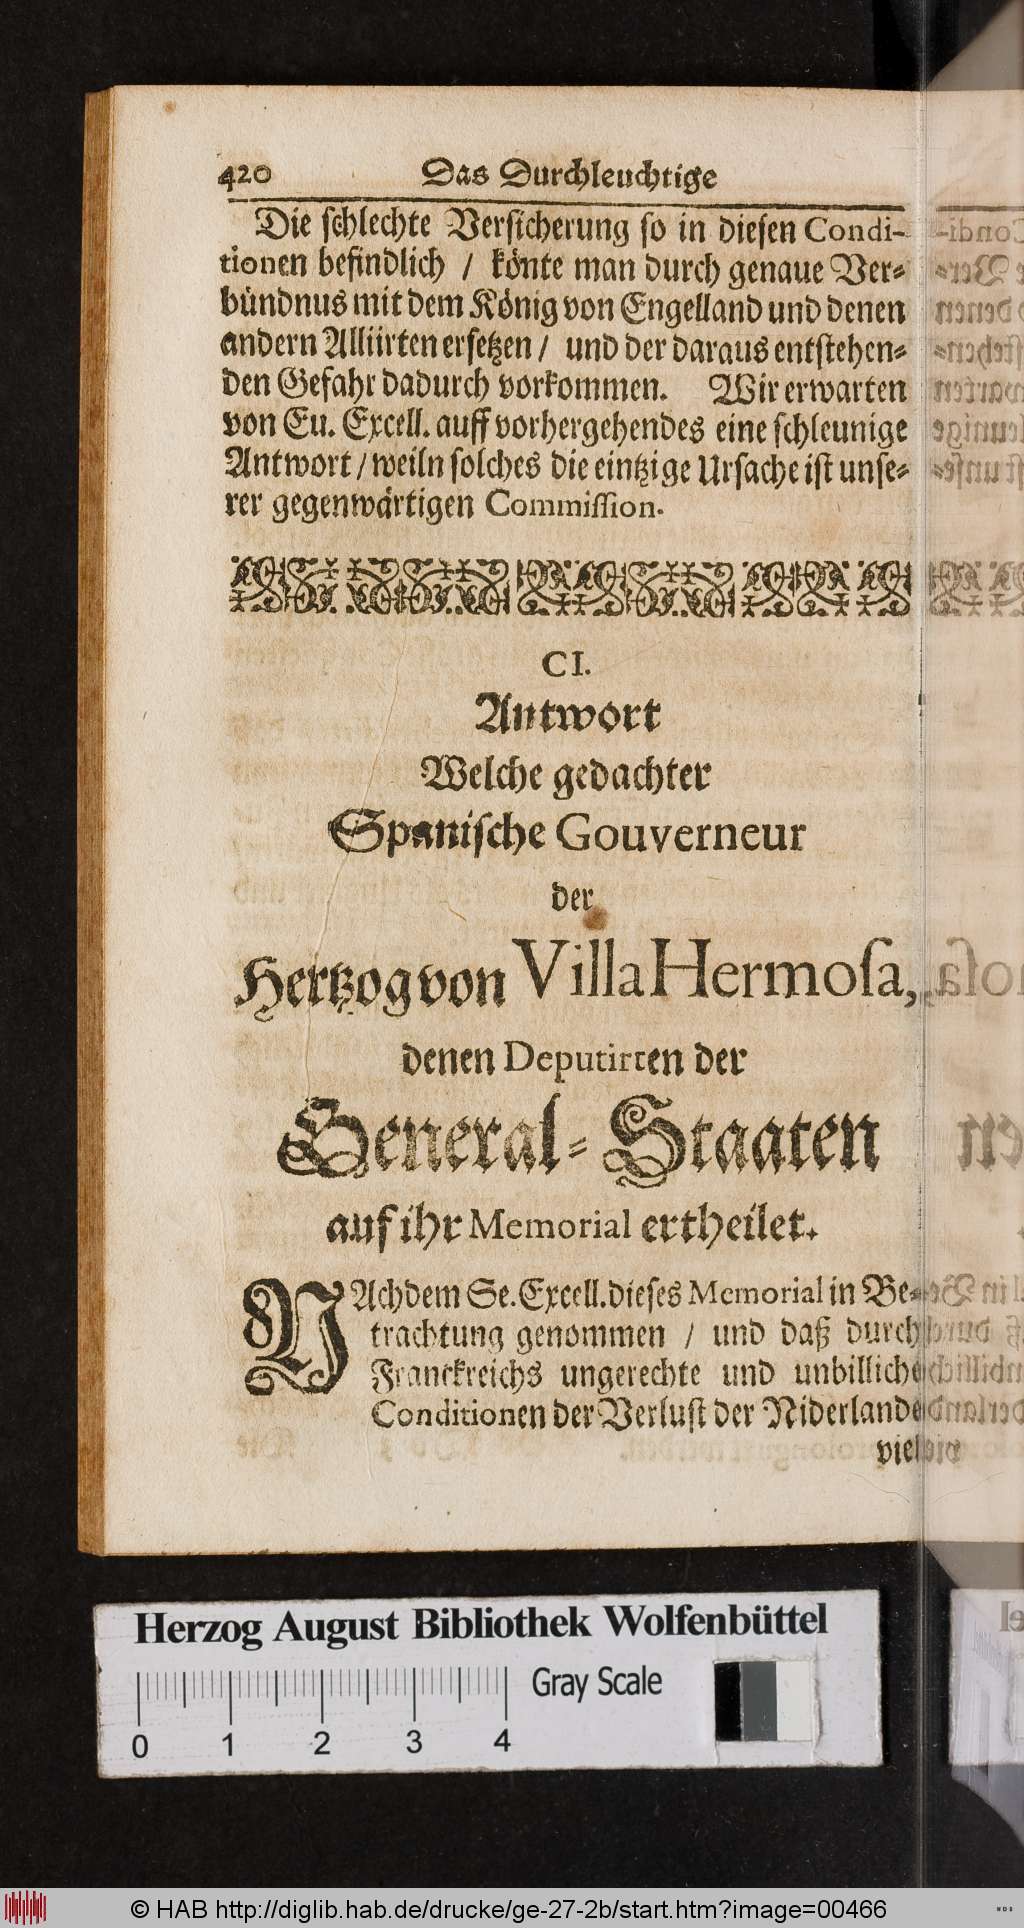 420 Das Durchleuchtige
Die schlechte Versicherung so in diesen Condi-
tionen befindlich / könte man durch genaue Ver-
bündnus mit dem König von Engelland und denen
andern Alliirten ersetzen / und der daraus entstehen-
den Gefahr dadurch vorkommen. Wir erwarten
von Eu. Excell. auff vorhergehendes eine schleunige
Antwort / weiln solches die eintzige Ursache ist unse-
rer gegenwärtigen Commission.
CI.
Antwort
Welche gedachter
Spanische Gouverneur
der
Hertzog von Villa Hermosa,
denen Deputirten der
General-Staaten
auf ihr Memorial ertheilet.
NAchdem Se. Excell. dieses Memorial in Be-
trachtung genommen / und daß durch
Franckreichs ungerechte und unbilliche
Conditionen der Verlust der Niderlande
viel
Herzog August Bibliothek Wolfenbüttel
Gray Scale
0 1 2 3 4
© HAB http://diglib.hab.de/drucke/ge-27-2b/start.htm?image=00466